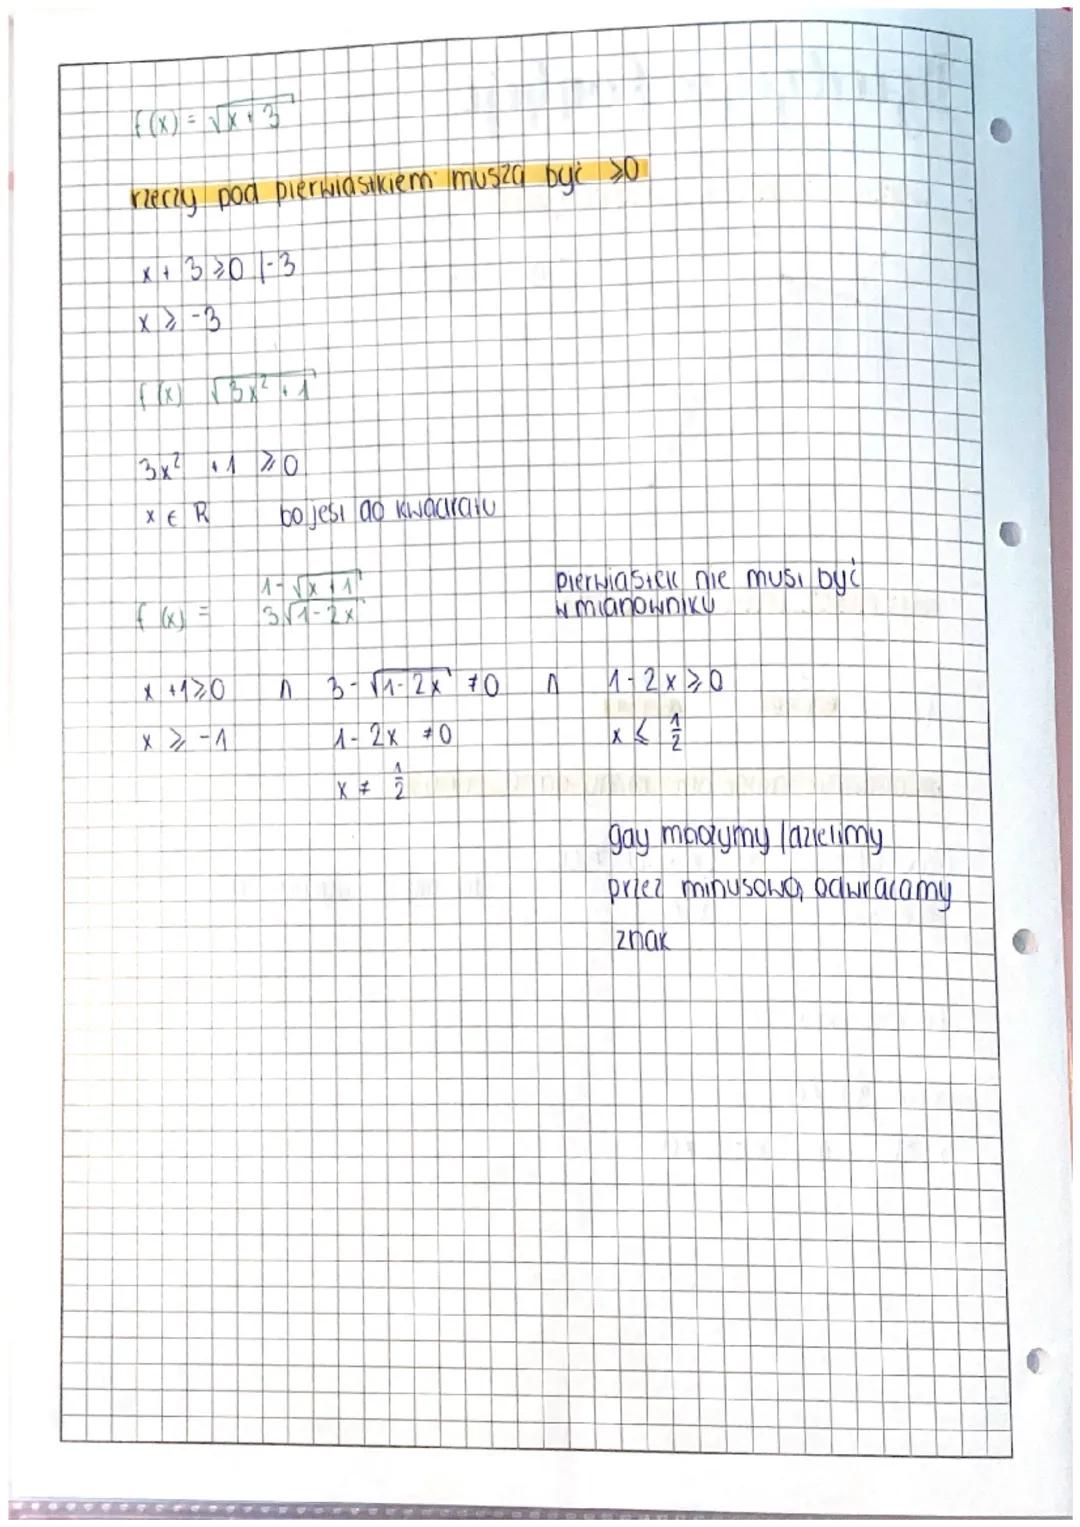 f(x) = √x+3
rzeczy pod pierwiastkiem muszą być ⩾0
x + 3 ⩾0 |-3
x ⩾ -3
f(x) √3x² + 1
3x² + 1 ⩾ 0
x ∈ R bo jest do kwadratu
f(x) = 1-√x+1 / 3√1-2x
pierwiastek nie musi być
w mianowniku
x +1⩾0 ∩ 3-√1-2x ≠0 ∩ 1-2x⩾0
x ⩾ -1 1-2x ≠0 x ⩽ 1/2
x ≠ 1/2
gdy mnożymy / dzielimy
przez minusową, odwracamy
znak